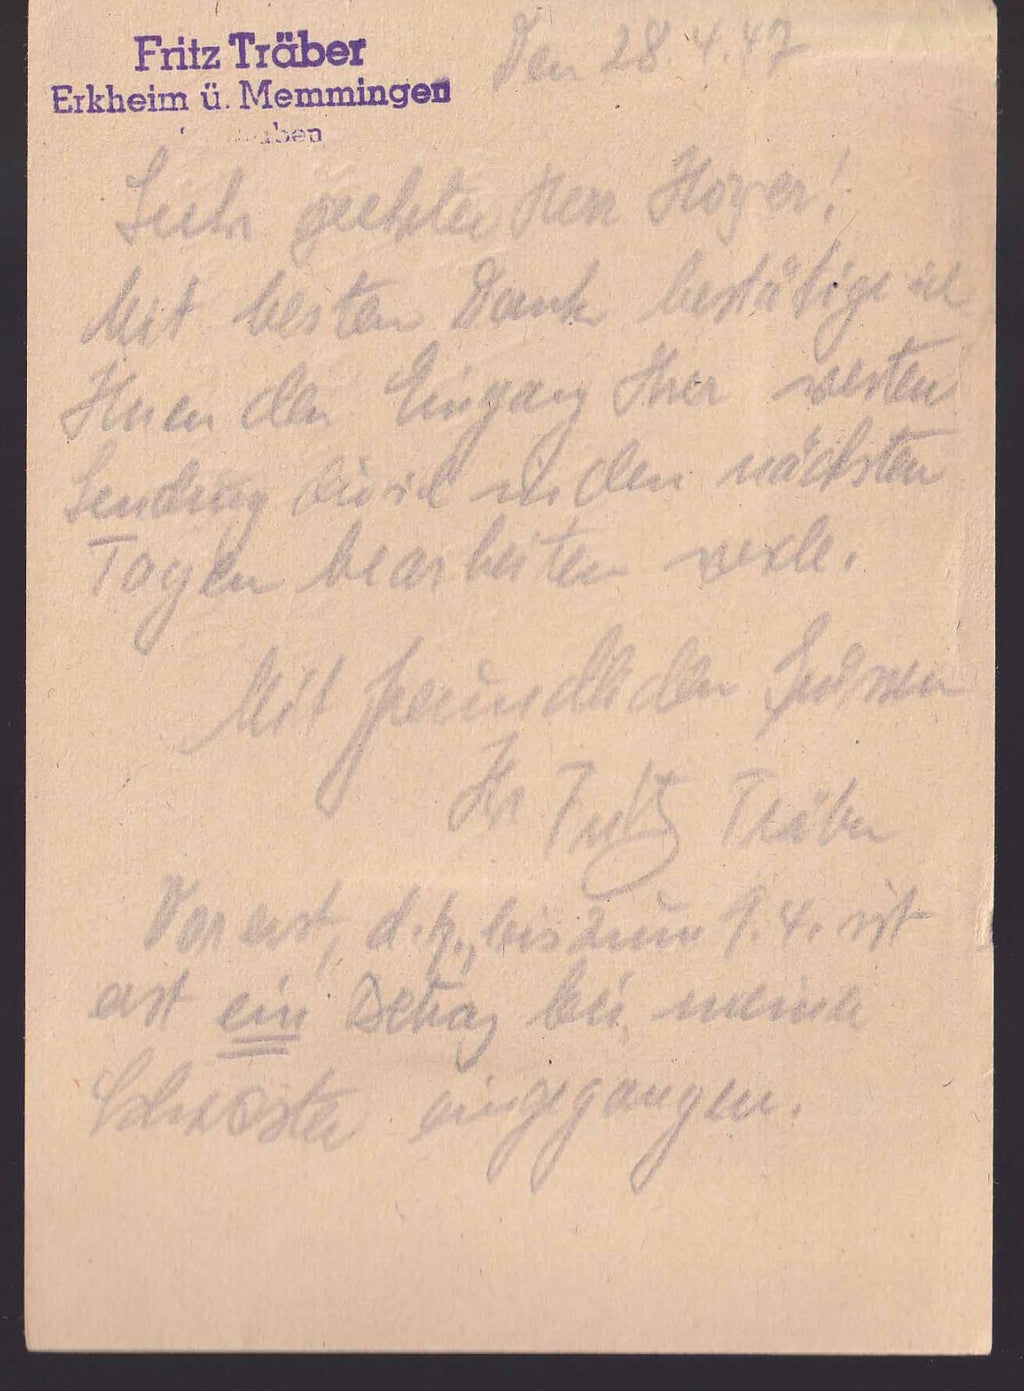 Fritz Träber
Erkheim ü. Memmingen
Den 28.4.47
Sehr geehrter Herr Hoyer!
Mit besten Dank bestätige ich
Ihnen den Eingang Ihrer werten
Sendung die ich in den nächsten
Tagen bearbeiten werde.
Mit freundlichen Grüssen
Ihr Fritz Träber
Vorerst, d.h., bis zum 9.4. ist
erst ein Betrag bei meiner
Schwester eingegangen.